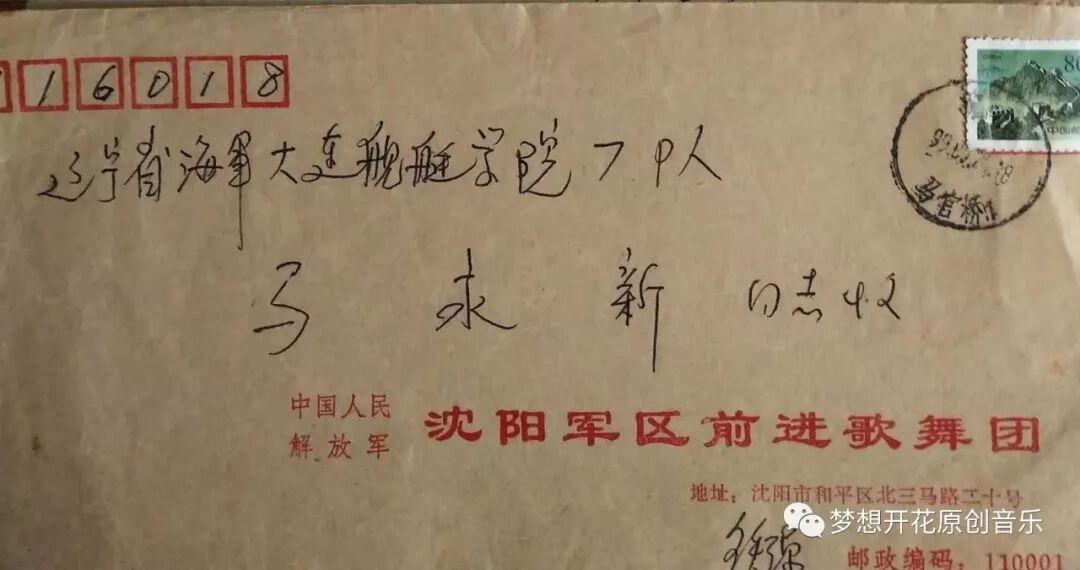 116018
80
中国邮
辽宁省海军大连舰艇学院
马官桥
马永新同志收
中国人民
解放军
沈阳军区前进歌舞团
地址：沈阳市和平区北三马路二十号
梦想开花原创音乐
邮政编码：110001